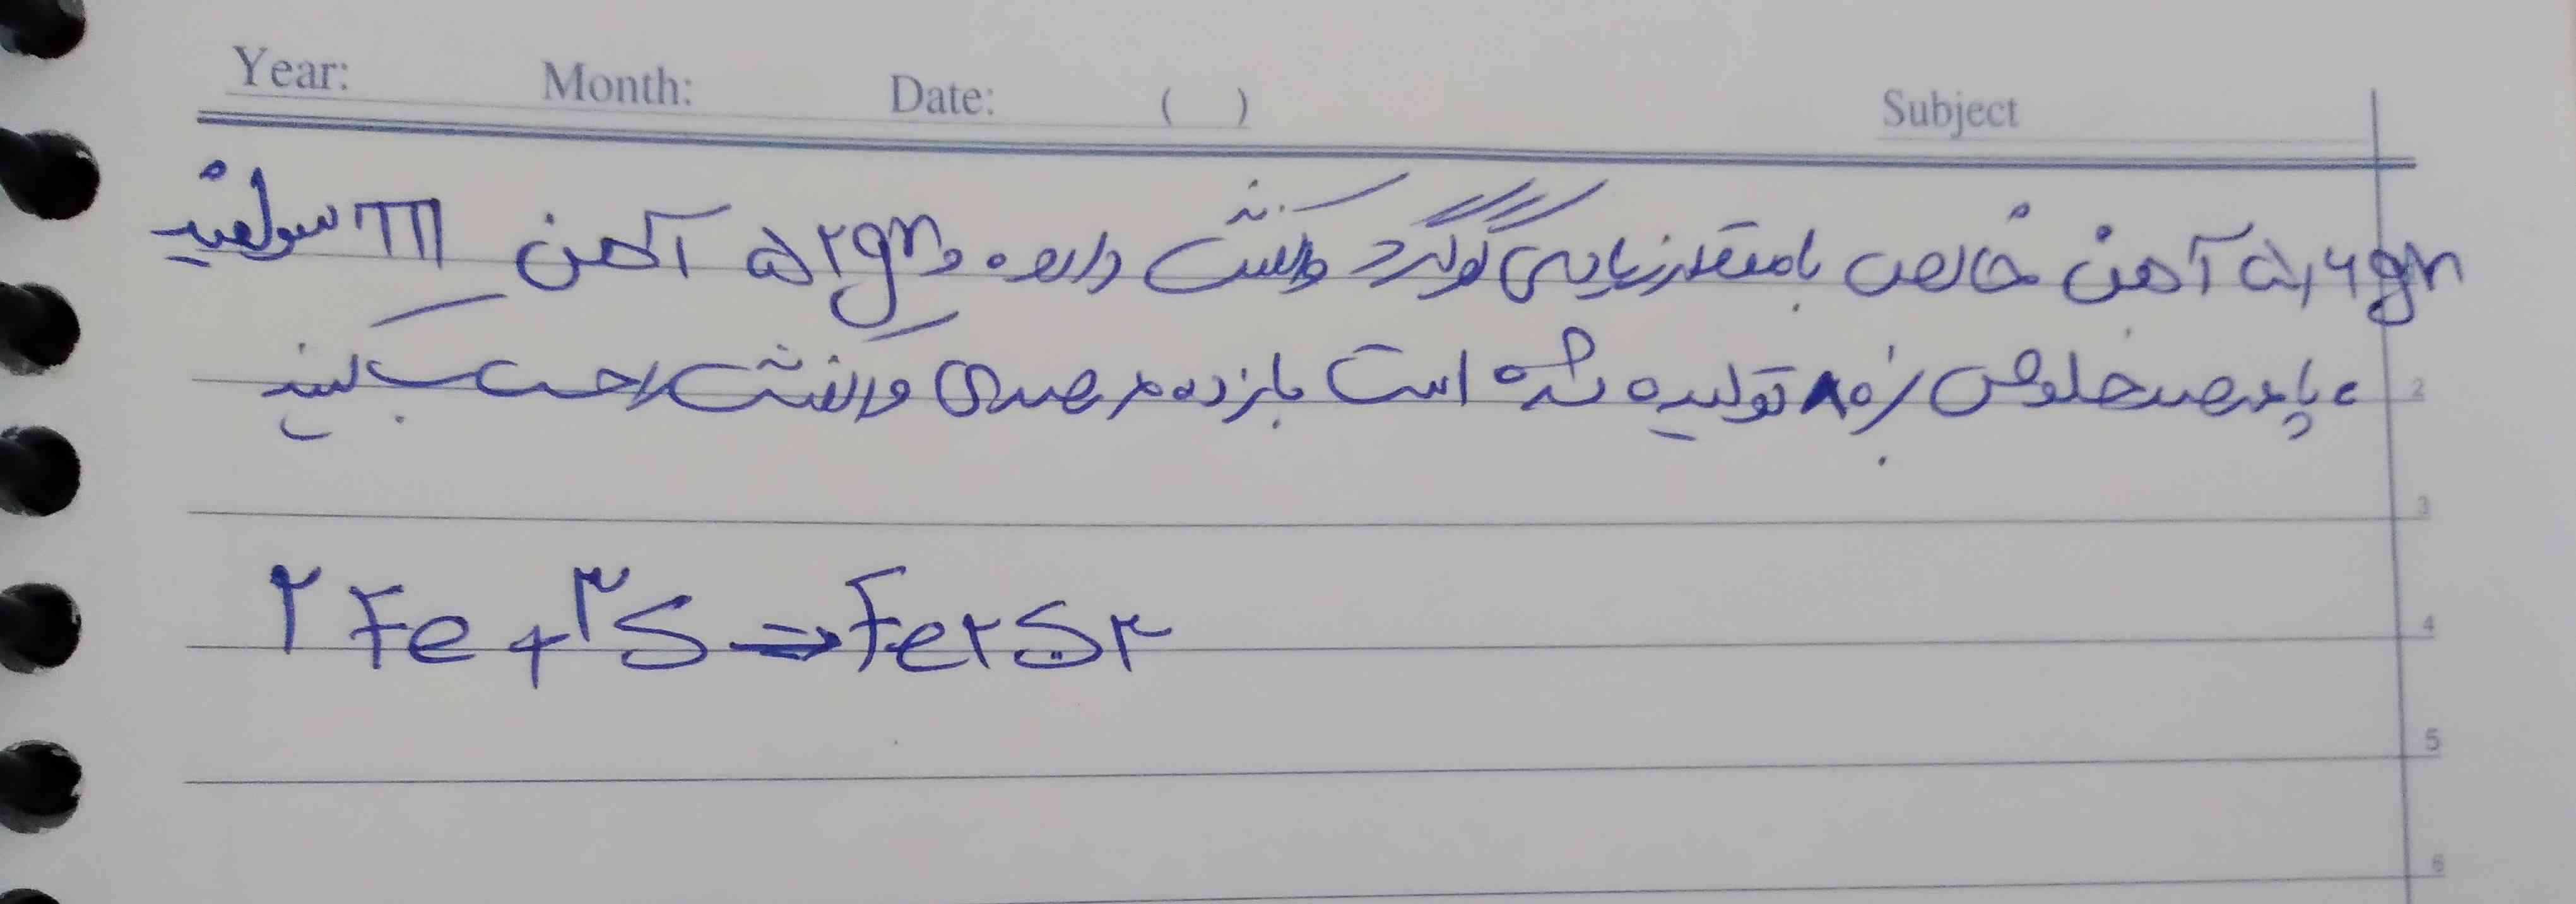 Year: Month: Date: ( ) Subject
۵,۶gr آهن خالص با مقدار زیادی گوگرد واکنش داده و ۵۲gr آهن III سولفید
با درصد خلوص ٪۸۰ تولیده شده است بازده درصدی واکنش راحساب کنید
2
3
۲Fe+۳S⇒Fe۲S۳
4
5
6